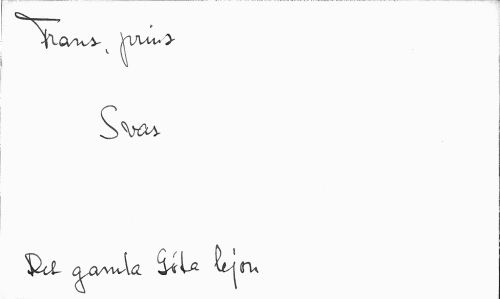 Frans, prins
Svas
Det gamla Göta lejon